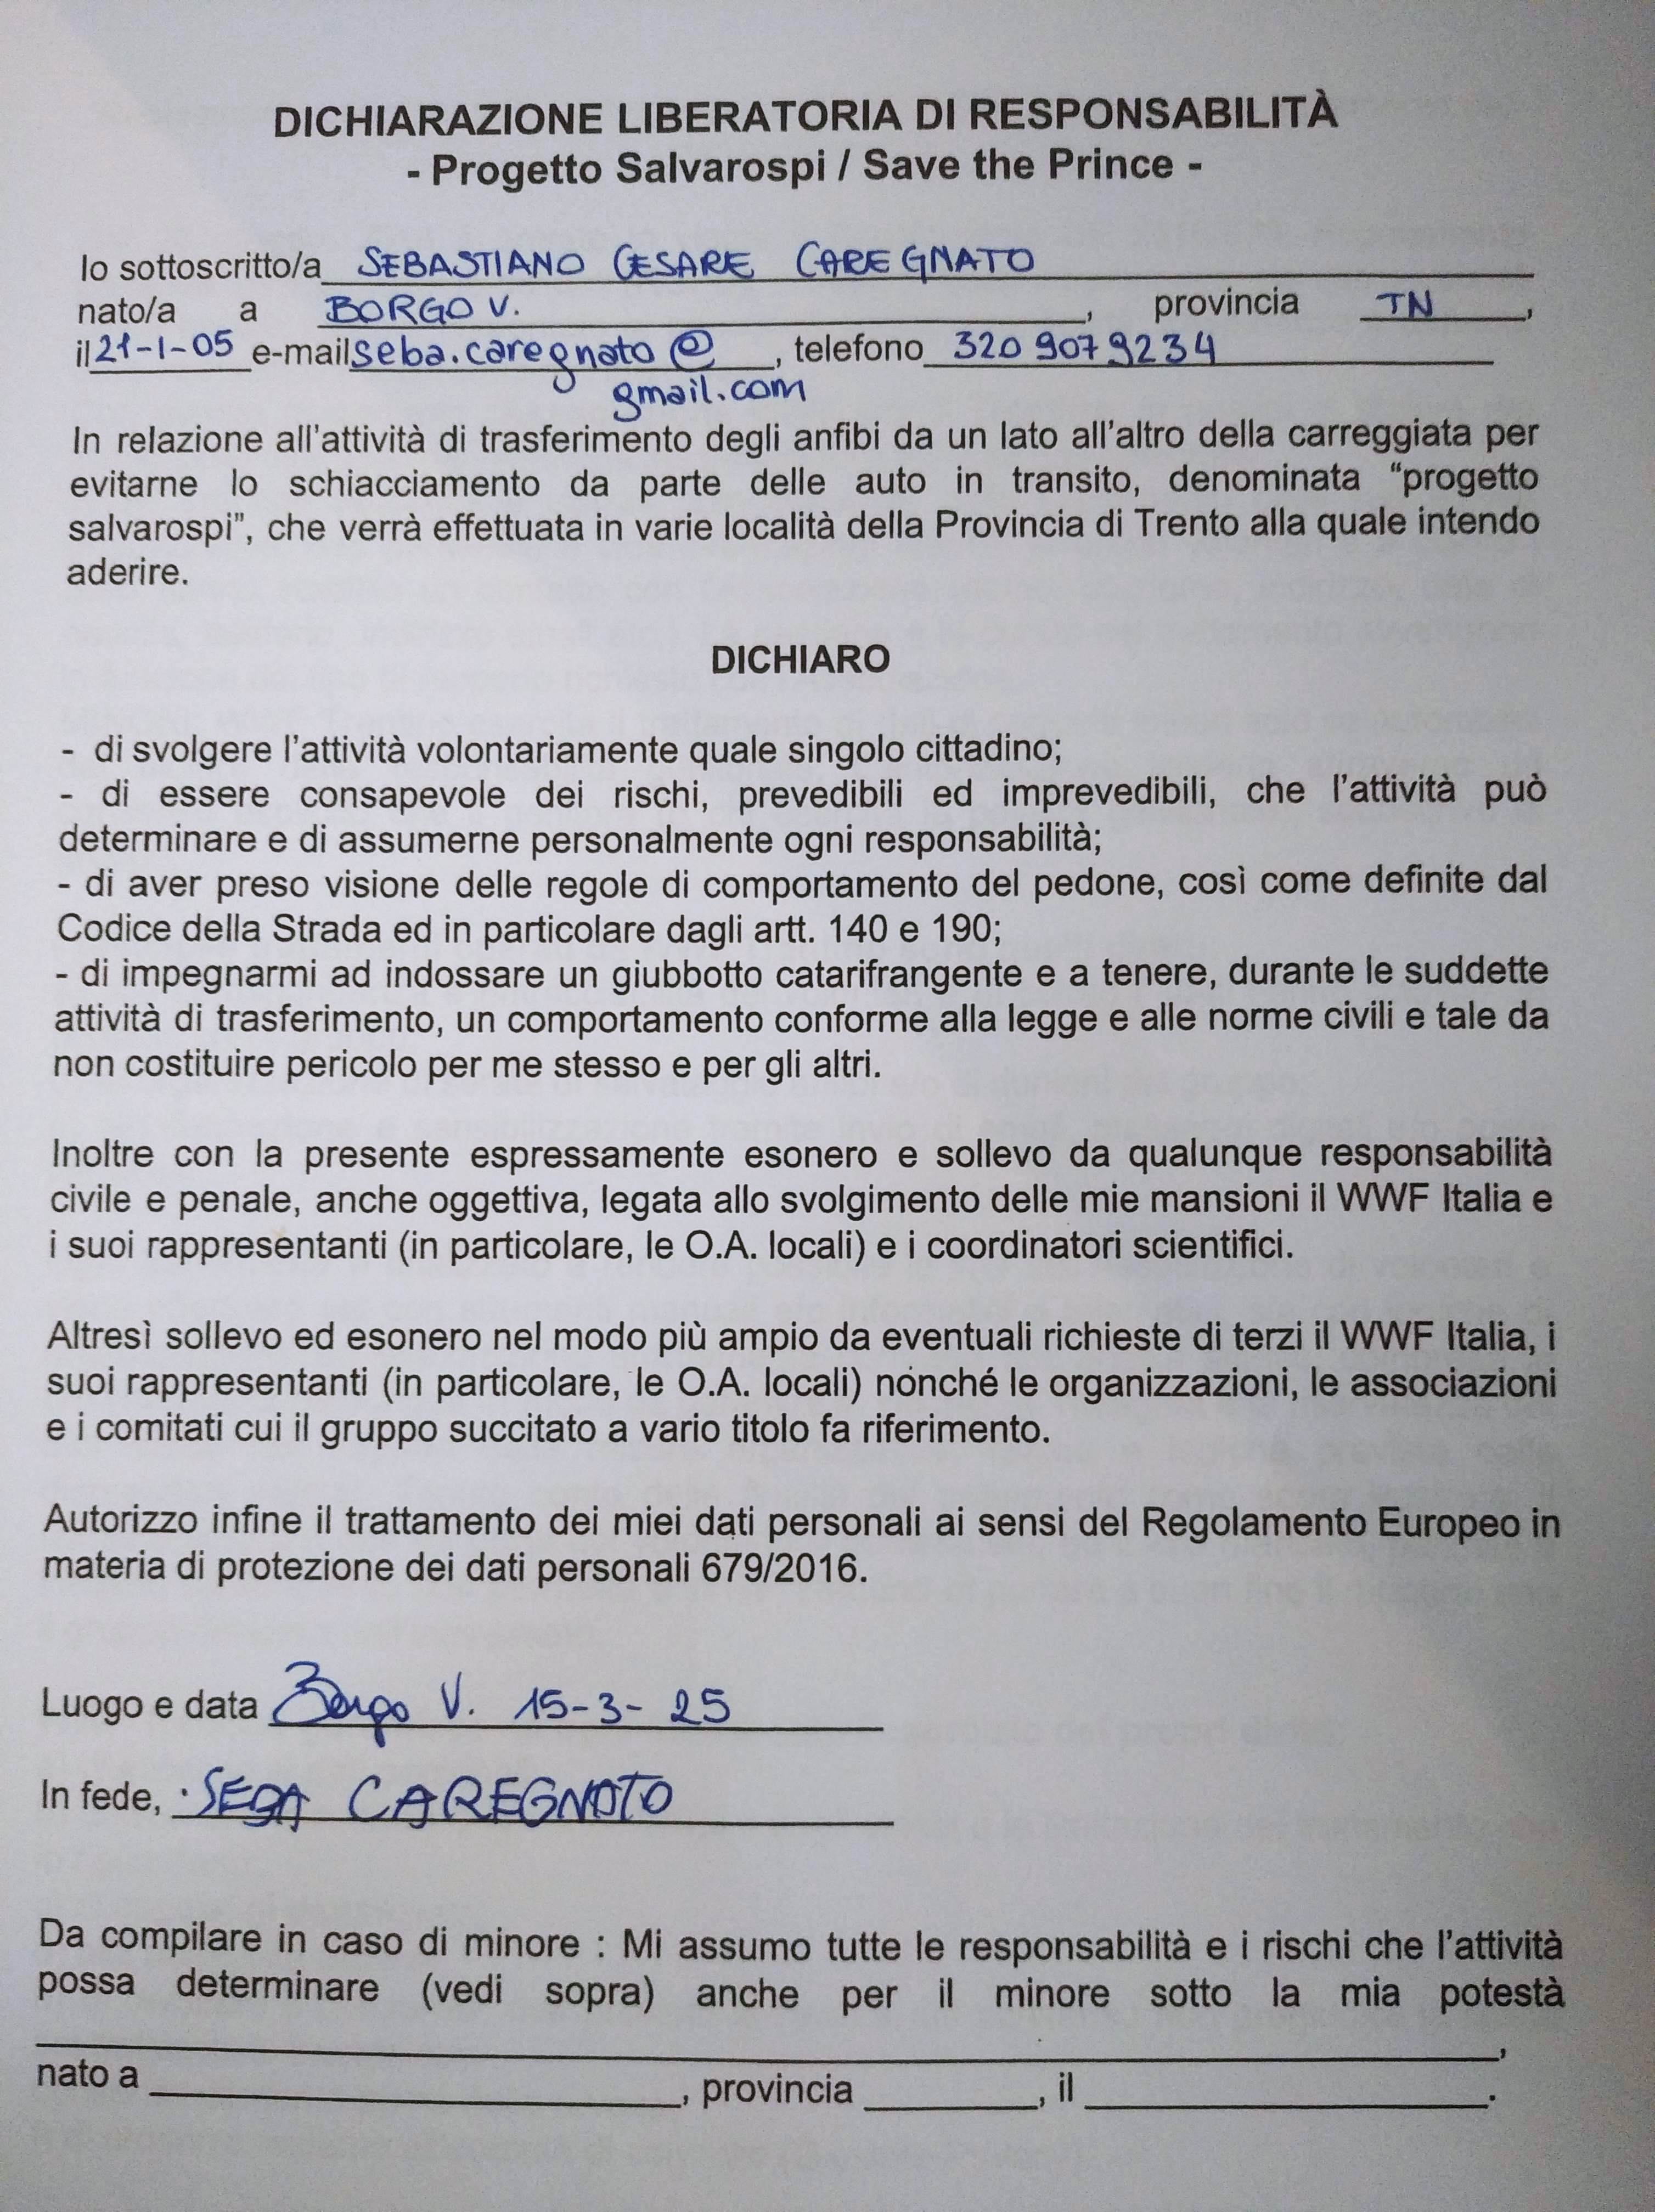 DICHIARAZIONE LIBERATORIA DI RESPONSABILITÀ
- Progetto Salvarospi / Save the Prince -
Io sottoscritto/a SEBASTIANO CESARE CAREGNATO
nato/a a BORGO V. , provincia TN ,
il 21-1-05 e-mail seba.caregnato@ , telefono 320 9079234
gmail.com
In relazione all'attività di trasferimento degli anfibi da un lato all'altro della carreggiata per
evitarne lo schiacciamento da parte delle auto in transito, denominata “progetto
salvarospi”, che verrà effettuata in varie località della Provincia di Trento alla quale intendo
aderire.
DICHIARO
- di svolgere l'attività volontariamente quale singolo cittadino;
- di essere consapevole dei rischi, prevedibili ed imprevedibili, che l'attività può
determinare e di assumerne personalmente ogni responsabilità;
- di aver preso visione delle regole di comportamento del pedone, così come definite dal
Codice della Strada ed in particolare dagli artt. 140 e 190;
- di impegnarmi ad indossare un giubbotto catarifrangente e a tenere, durante le suddette
attività di trasferimento, un comportamento conforme alla legge e alle norme civili e tale da
non costituire pericolo per me stesso e per gli altri.
Inoltre con la presente espressamente esonero e sollevo da qualunque responsabilità
civile e penale, anche oggettiva, legata allo svolgimento delle mie mansioni il WWF Italia e
i suoi rappresentanti (in particolare, le O.A. locali) e i coordinatori scientifici.
Altresì sollevo ed esonero nel modo più ampio da eventuali richieste di terzi il WWF Italia, i
suoi rappresentanti (in particolare, le O.A. locali) nonché le organizzazioni, le associazioni
e i comitati cui il gruppo succitato a vario titolo fa riferimento.
Autorizzo infine il trattamento dei miei dati personali ai sensi del Regolamento Europeo in
materia di protezione dei dati personali 679/2016.
Luogo e data Borgo V. 15-3-25
In fede, SEBA CAREGNATO
Da compilare in caso di minore : Mi assumo tutte le responsabilità e i rischi che l'attività
possa determinare (vedi sopra) anche per il minore sotto la mia potestà
,
nato a , provincia , il .